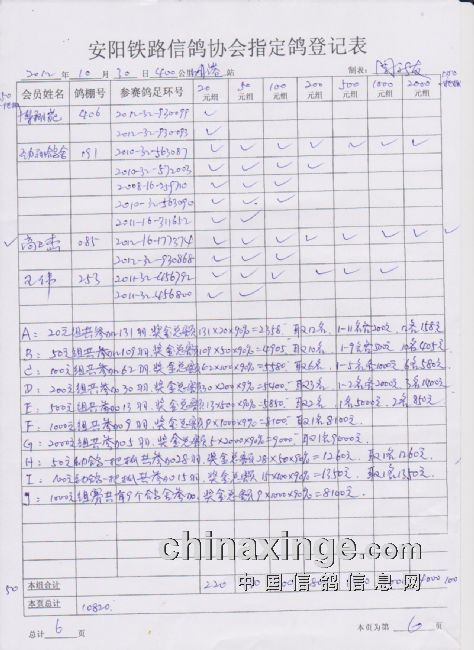 安阳铁路信鸽协会指定鸽登记表
2012 年 10 月 30 日 400 公里 站 制表:
会员姓名 鸽棚号 参赛鸽足环号 20元组 50元组 100元组 200元组 500元组 1000元组 2000元组
406 2012-32-930099 ✓
2012-32-930093 ✓
091 2010-32-563087 ✓ ✓ ✓ ✓ ✓ ✓ ✓
2010-32-572003 ✓ ✓ ✓ ✓
2008-16-259710 ✓ ✓ ✓
2010-32-563090 ✓ ✓
2011-16-311652 ✓ ✓
085 2012-16-177374 ✓ ✓ ✓ ✓ ✓ ✓ ✓
2012-32-930868 ✓ ✓ ✓
王伟 253 2011-32-456792 ✓ ✓ ✓ ✓ ✓
2011-32-456800 ✓ ✓ ✓
A: 20元组共参加131羽.奖金总额131×20×90%=2358 取12名. 1-11名各200元, 12名158元
B: 50元组共参加109羽.奖金总额109×50×90%=4905. 取10名 1-9名各500元 10名405元
C: 100元组共参加62羽.奖金总额62×100×90%=5580 取6名 1-5名各1000元 6名580元
D: 200元组共参加30羽.奖金总额30×200×90%=5400. 取3名 1-2名各2000元 3名1400元
E: 500元组共参加13羽.奖金总额13×500×90%=5850 取2名 1名5000元 2名850元
F: 1000元组共参加9羽.奖金总额9×1000×90%=8100元 取1名8100元
G: 2000元组共参加5羽.奖金总额5×2000×90%=9000 取1名9000元
H: 50元 一把抓共参加28羽.奖金总额28×50×90%=1260元. 取1名1260元
I: 100元 一把抓共参加15羽.奖金总额15×100×90%=1350元 取1名1350元.
J: 1000元组 共有9个鸽舍参加.奖金总额9×1000×90%=8100元
chinaxinge.com
中国信鸽信息网
50 本组合计 220 100
本页总计 10820.
总计 6 页 本页为第 6 页